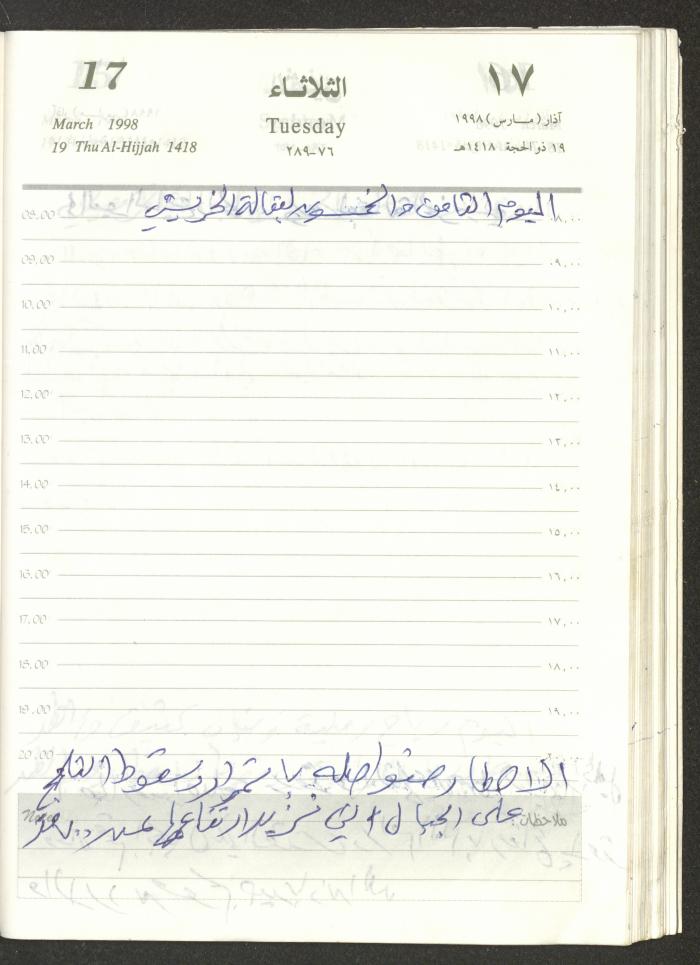 17 الثلاثاء ١٧
March 1998 Tuesday آذار (مارس) ١٩٩٨
19 Thu Al-Hijjah 1418 ٧٦-٢٨٩ ١٩ ذو الحجة ١٤١٨هـ
اليوم الثامن والخمسون لبقالة الخريشي
08.00 ٨,٠٠
09.00 ٠٩,٠٠
10.00 ١٠,٠٠
11.00 ١١,٠٠
12.00 ١٢,٠٠
13.00 ١٣,٠٠
14.00 ١٤,٠٠
15.00 ١٥,٠٠
16.00 ١٦,٠٠
17.00 ١٧,٠٠
18.00 ١٨,٠٠
19.00 ١٩,٠٠
20.00
الامطار متواصلة باستمرار وسقوط الثلج
Notes على الجبال التي تزيد ارتفاعها عن ملاحظات